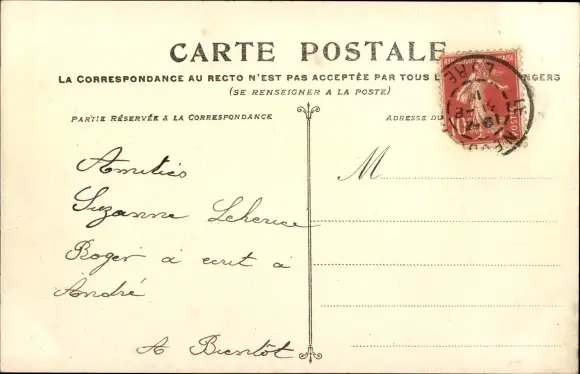 CARTE POSTALE
LA CORRESPONDANCE AU RECTO N'EST PAS ACCEPTÉE PAR TOUS L NGERS
(SE RENSEIGNER A LA POSTE)
PARTIE RÉSERVÉE A LA CORRESPONDANCE
ADRESSE DU
10
POSTES
EURE
M
Amitiés
Suzanne Leherice
Roger a ecrit à
André
A Bientôt